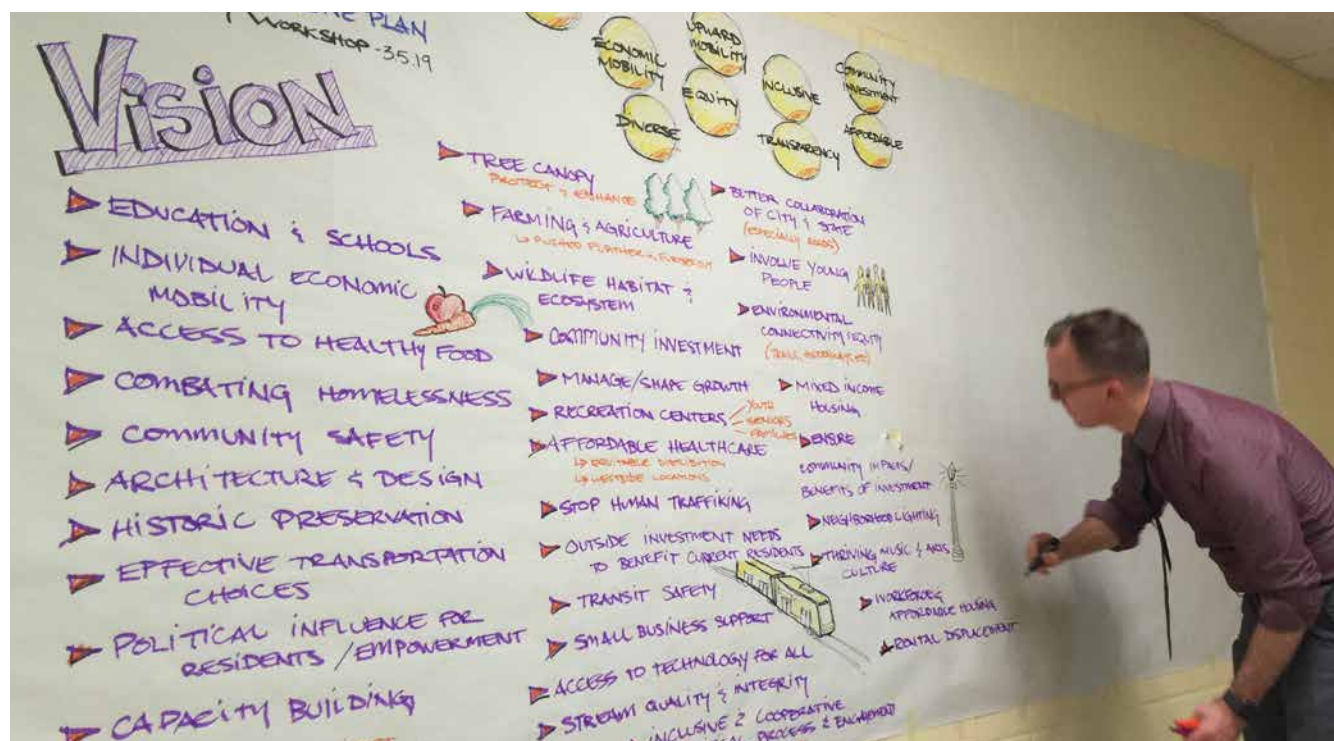 PLAN
WORKSHOP - 3.5.19
VISION
ECONOMIC
MOBILITY
UPWARD
MOBILITY
EQUITY
DIVERSE
INCLUSIVE
TRANSPARENCY
COMMUNITY
INVESTMENT
AFFORDABLE
EDUCATION & SCHOOLS
INDIVIDUAL ECONOMIC
MOBILITY
ACCESS TO HEALTHY FOOD
COMBATING HOMELESSNESS
COMMUNITY SAFETY
ARCHITECTURE & DESIGN
HISTORIC PRESERVATION
EFFECTIVE TRANSPORTATION
CHOICES
POLITICAL INFLUENCE FOR
RESIDENTS / EMPOWERMENT
CAPACITY BUILDING
TREE CANOPY
PROTECT & ENHANCE
FARMING & AGRICULTURE
PUSHED FURTHER & FURTHER OUT
WILDLIFE HABITAT &
ECOSYSTEM
COMMUNITY INVESTMENT
MANAGE/SHAPE GROWTH
RECREATION CENTERS
YOUTH
SENIORS
FAMILIES
AFFORDABLE HEALTHCARE
EQUITABLE DISTRIBUTION
WESTSIDE LOCATIONS
STOP HUMAN TRAFFIKING
OUTSIDE INVESTMENT NEEDS
TO BENEFIT CURRENT RESIDENTS
TRANSIT SAFETY
SMALL BUSINESS SUPPORT
ACCESS TO TECHNOLOGY FOR ALL
STREAM QUALITY & INTEGRITY
INCLUSIVE & COOPERATIVE
PROCESS & ENGAGEMENT
BETTER COLLABORATION
OF CITY & STATE
(ESPECIALLY ROADS)
INVOLVE YOUNG
PEOPLE
ENVIRONMENTAL
CONNECTIVITY/EQUITY
MIXED INCOME
HOUSING
ENSURE
COMMUNITY IMPACTS/
BENEFITS OF INVESTMENT
NEIGHBORHOOD LIGHTING
THRIVING MUSIC & ARTS
CULTURE
WORKFORCE
AFFORDABLE HOUSING
RENTAL DISPLACEMENT